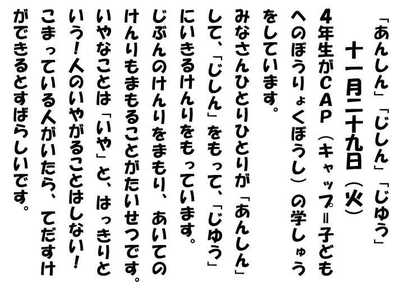 「あんしん」「じしん」「じゆう」
十一月二十九日（火）
４年生がＣＡＰ（キャップ＝子ども
へのぼうりょくぼうし）の学しゅう
をしています。
みなさんひとりひとりが「あんしん」
して、「じしん」をもって、「じゆう」
にいきるけんりをもっています。
じぶんのけんりをまもり、あいての
けんりもまもることがたいせつです。
いやなことは「いや」と、はっきりと
いう！人のいやがることはしない！
こまっている人がいたら、てだすけ
ができるとすばらしいです。